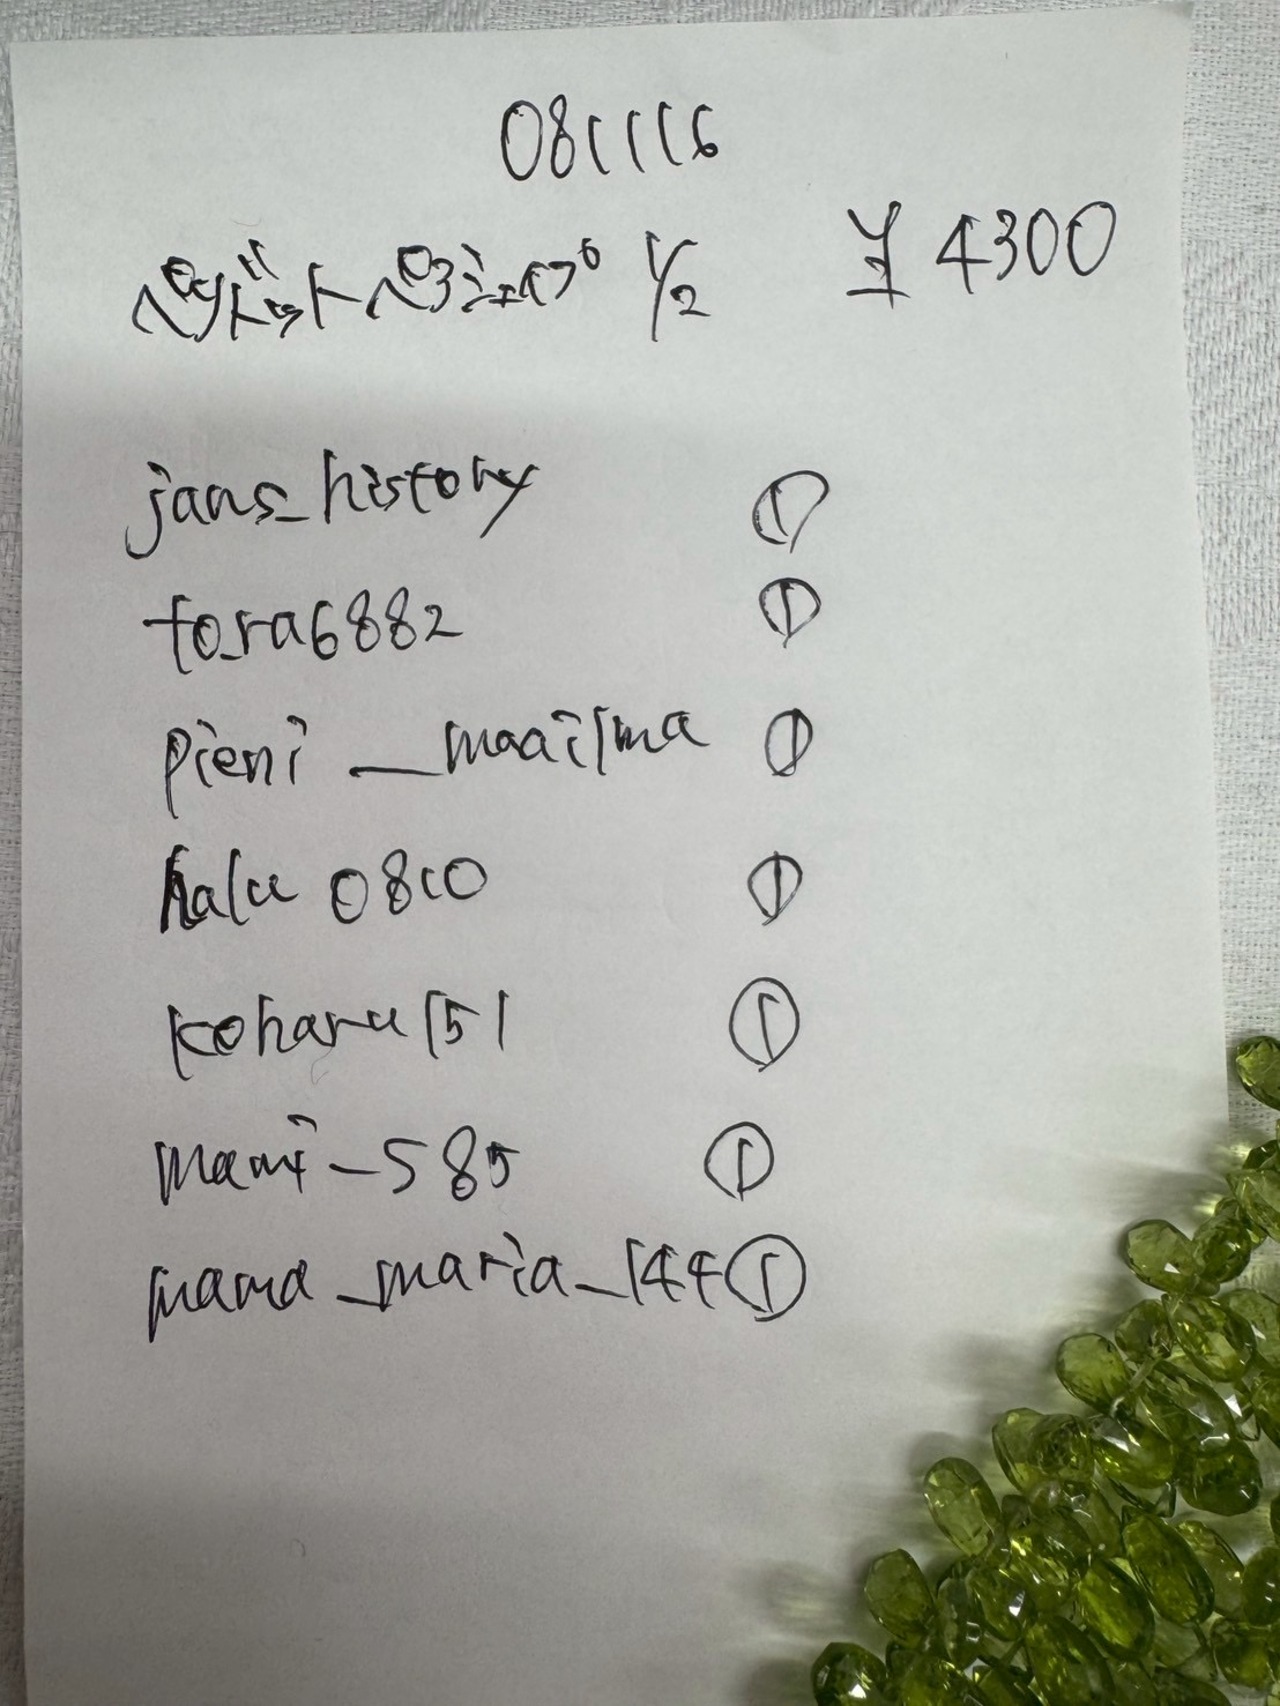 081116
ペリドットペアシェイプ 1/2 ¥4300
jans_history ①
tora6882 ①
pieni_maailma ①
halu0810 ①
koharu151 ①
mami-585 ①
mama_maria_144 ①